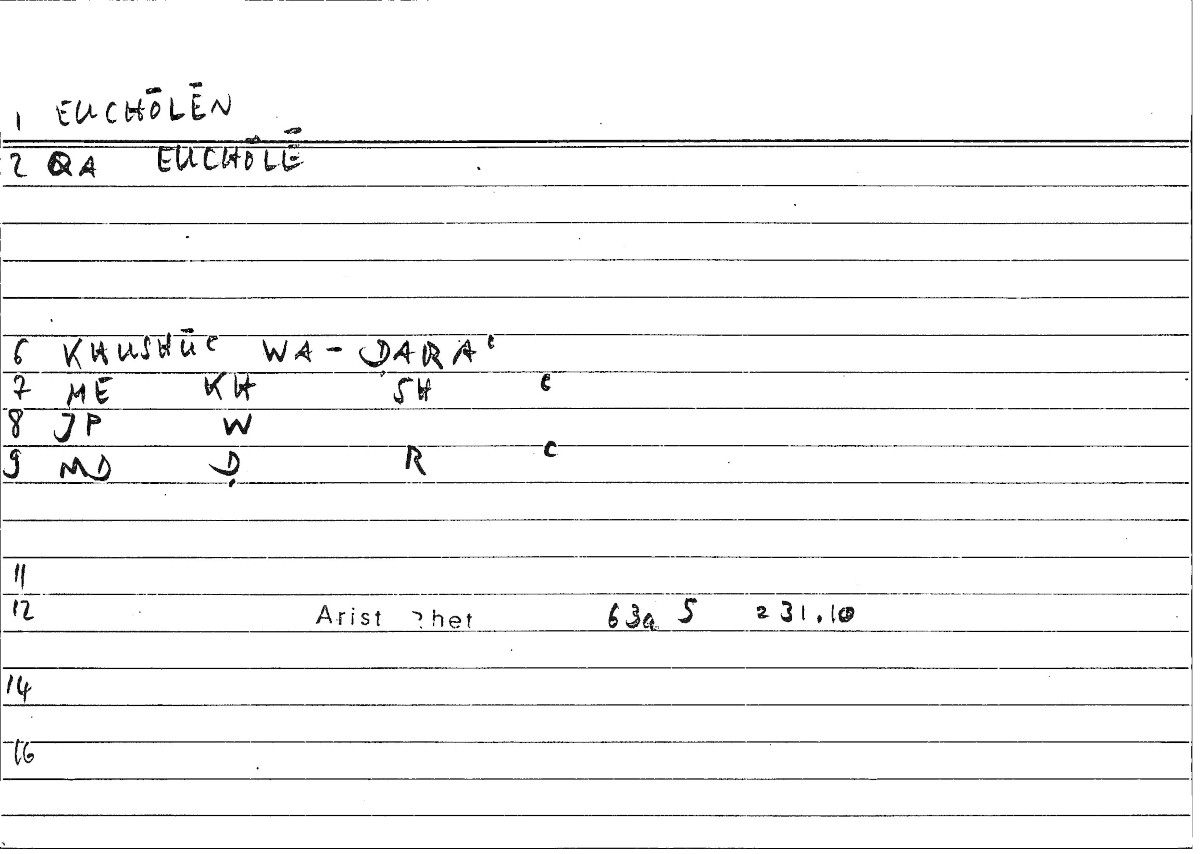 1 EUCHŌLĒN
2 QA EUCHŌLĒ
6 KHUSHŪʿ WA-ḌARAʿ
7 ME KH SH ʿ
8 JP W
9 MD Ḍ R ʿ
11
12 Arist Rhet 63a 5 231.10
14
16